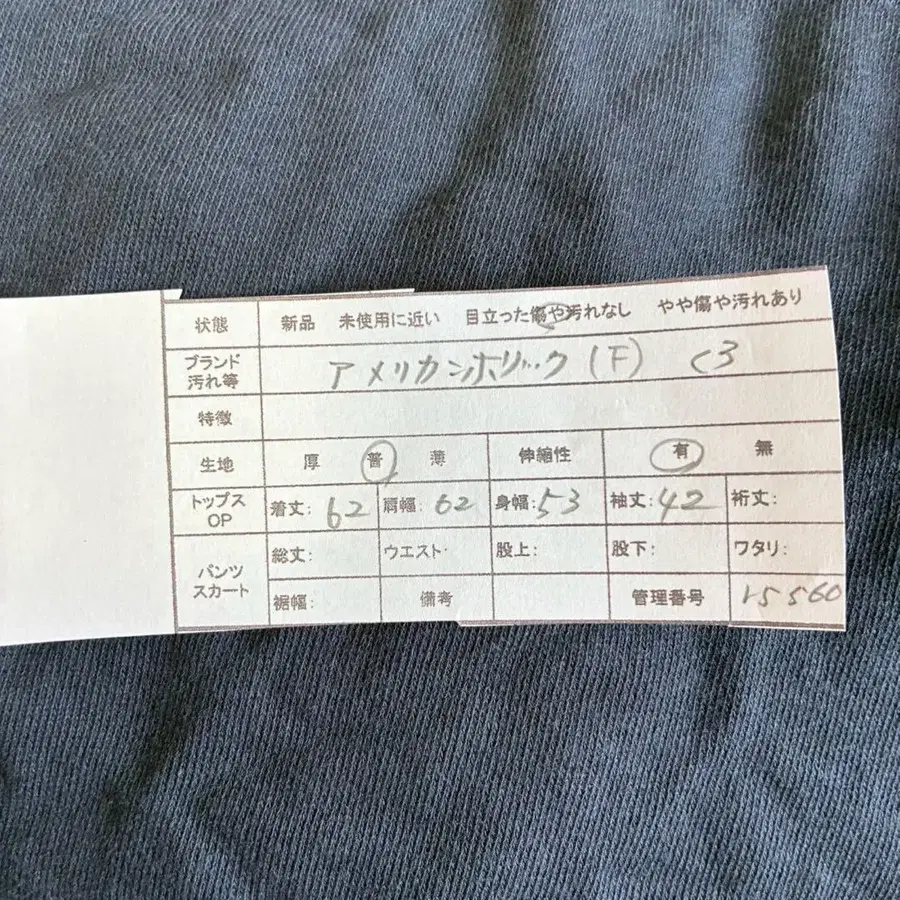 状態 新品 未使用に近い 目立った傷や汚れなし やや傷や汚れあり
ブランド 汚れ等 アメリカンホリック(F) C3
特徴
生地 厚 普 薄 伸縮性 有 無
トップス OP 着丈: 62 肩幅: 62 身幅: 53 袖丈: 42 裄丈:
パンツ スカート 総丈: ウエスト: 股上: 股下: ワタリ:
裾幅: 備考 管理番号 15560